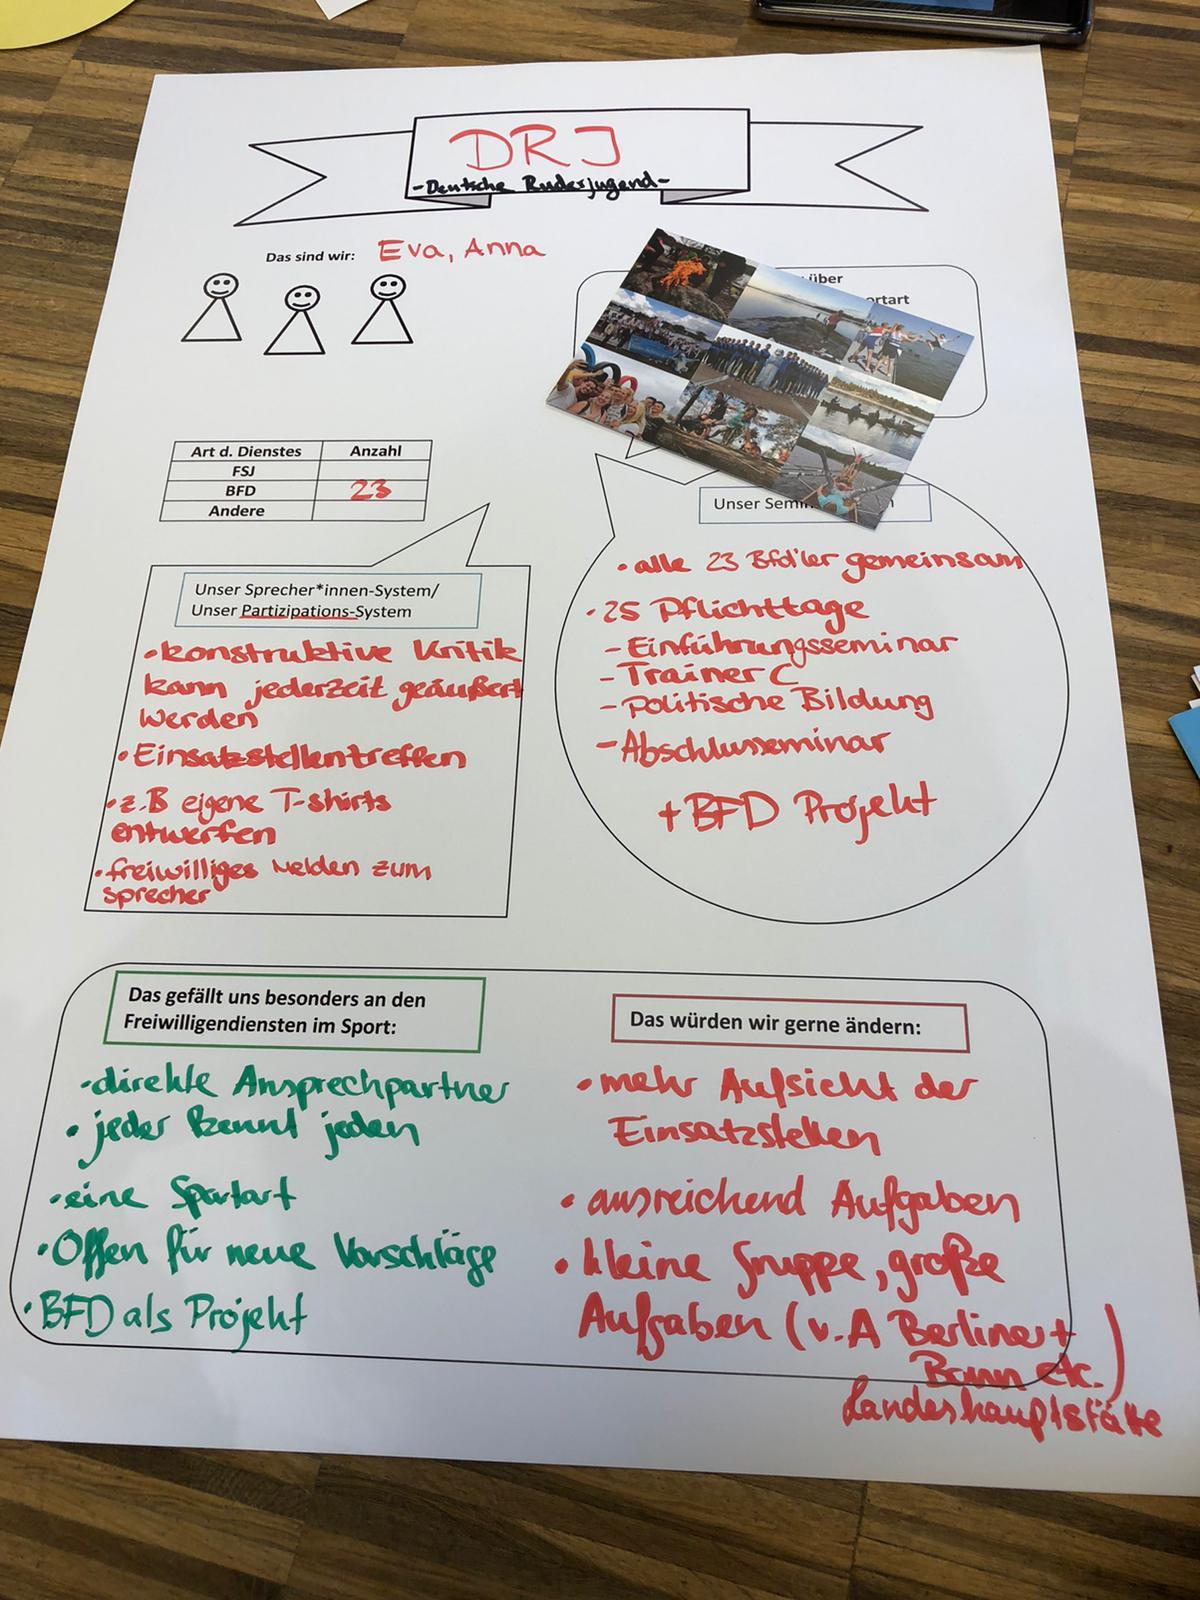 DRJ
-Deutsche Ruderjugend-
Das sind wir: Eva, Anna
über
ortart
Art d. Dienstes Anzahl
FSJ
BFD 23
Andere
Unser Sprecher*innen-System/
Unser Partizipations-System
• konstruktive Kritik
kann jederzeit geäußert
werden
• Einsatzstellentreffen
• z.B eigene T-shirts
entwerfen
• freiwilliges Melden zum
sprecher
Unser
• alle 23 Bfd'ler gemeinsam
• 25 Pflichttage
- Einführungsseminar
- Trainer C
- Politische Bildung
- Abschlusseminar
+ BFD Projekt
Das gefällt uns besonders an den
Freiwilligendiensten im Sport:
• direkte Ansprechpartner
• jeder kennt jeden
• eine Sportart
• Offen für neue Vorschläge
• BFD als Projekt
Das würden wir gerne ändern:
• mehr Aufsicht der
Einsatzstellen
• ausreichend Aufgaben
• kleine Gruppe, große
Aufgaben (v.A Berliner +
Bonn etc.)
Landeshauptstätte